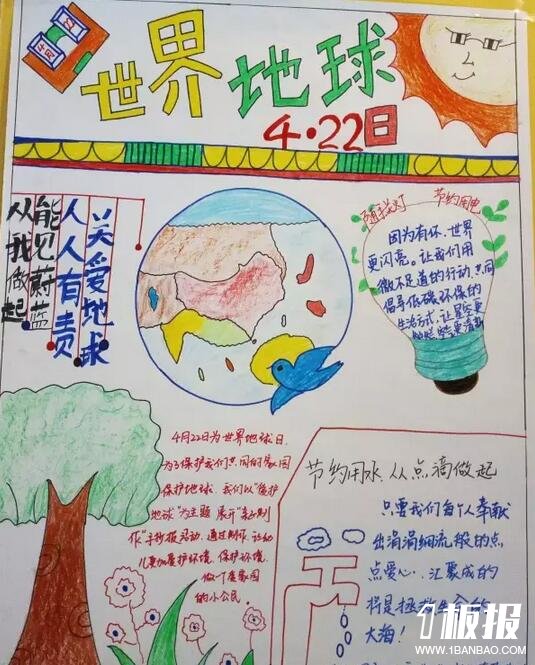 世界地球
4·22日
关爱地球
人人有责
能见蔚蓝
从我做起
随手关灯
节约用电
因为有你,世界
更闪亮。让我们用
微不足道的行动,共同
倡导低碳环保的
生活方式,让星空更
4月22日为世界地球日,
为了保护我们共同的家园
保护地球,我们以“爱护
地球”为主题,展开“亲子制
作”手抄报活动,通过制作,让幼
儿更加爱护环境,保护环境,
做一个爱家园
的小公民。
节约用水,从点滴做起
只要我们每个人奉献
出涓涓细流般的点
点爱心,汇聚成的
将是拯救生命的
大海!
板报
WWW.1BANBAO.COM